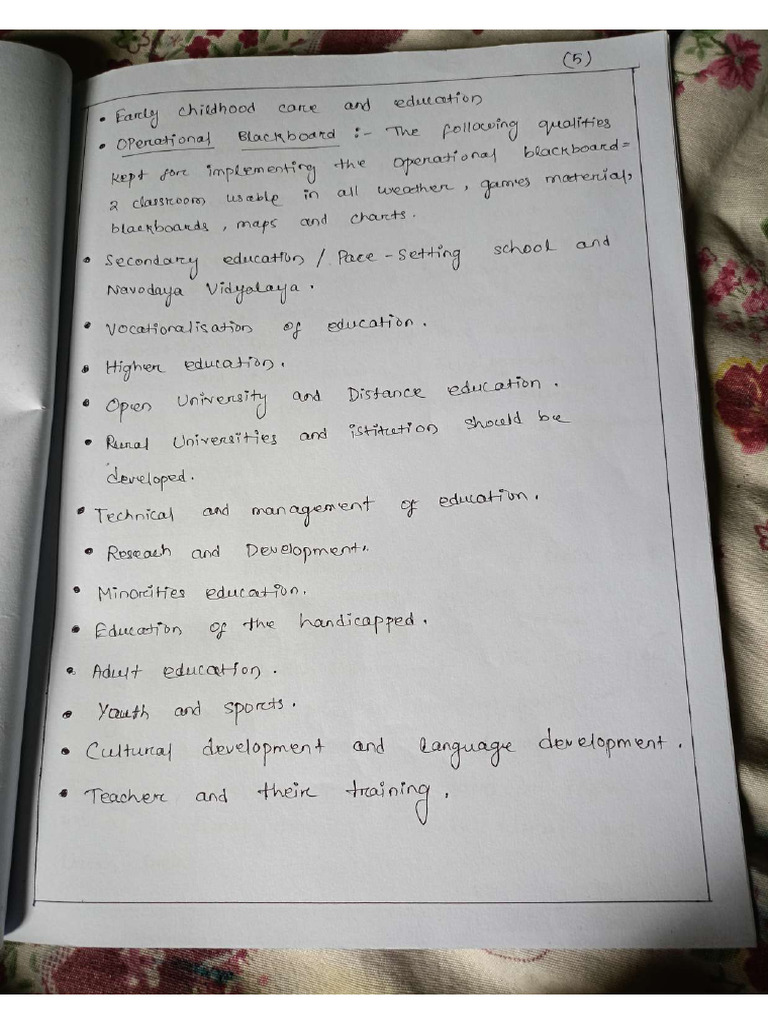 (5)
• Early childhood care and education
• Operational Blackboard :- The following qualities
kept for implementing the operational blackboard=
2 classroom usable in all weather, games material,
blackboards, maps and charts.
• Secondary education / Pace-Setting school and
Navodaya Vidyalaya.
• Vocationalisation of education.
• Higher education.
• Open University and Distance education.
• Rural Universities and istitution should be
developed.
• Technical and management of education.
• Reseach and Development.
• Minorities education.
• Education of the handicapped.
• Adult education.
• Youth and sports.
• Cultural development and language development.
• Teacher and their training.